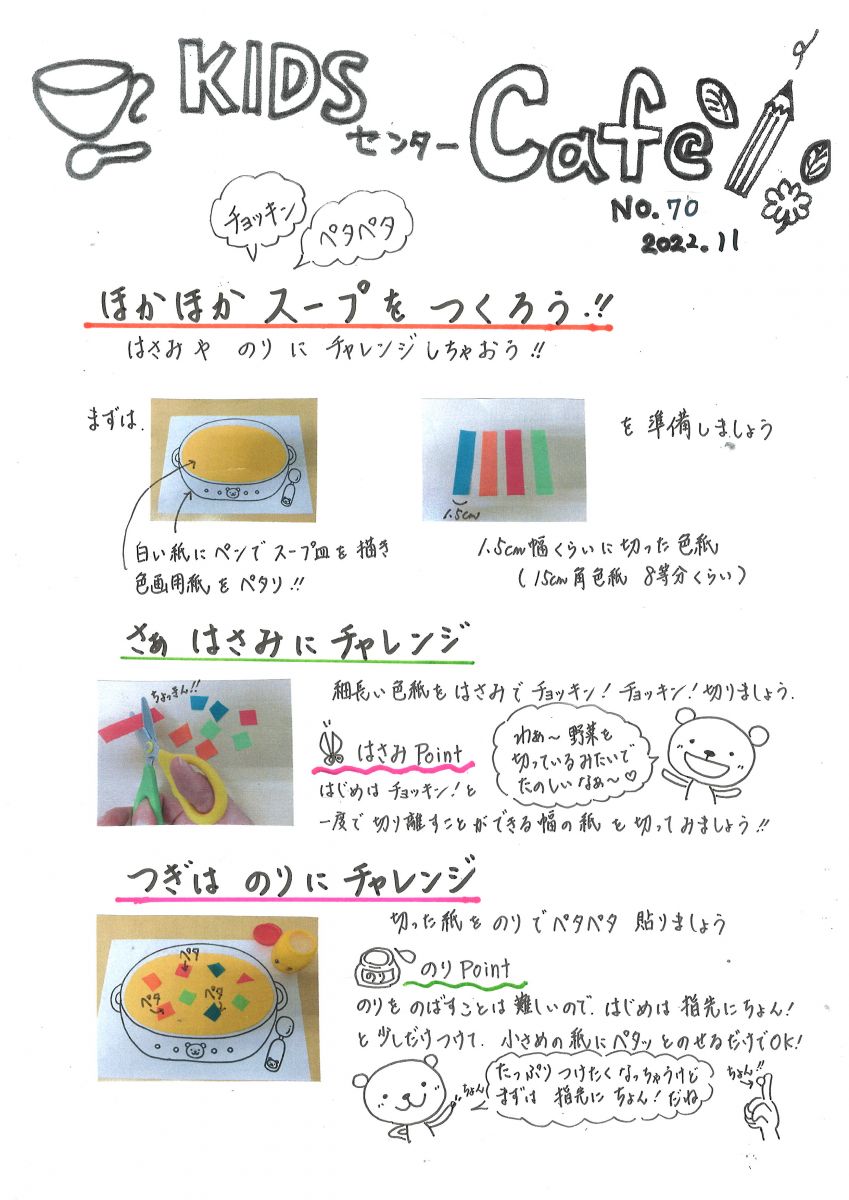 KIDS
センター Cafe
No.70
2022.11
チョッキン
ペタペタ
ほかほか スープを つくろう!!
はさみや のりに チャレンジしちゃおう!!
まずは、
を 準備しましょう
1.5cm
白い紙にペンでスープ皿を描き
色画用紙をペタリ!!
1.5cm幅くらいに切った色紙
(15cm角色紙 8等分くらい)
さぁ はさみにチャレンジ
ちょっきん!!
細長い色紙をはさみでチョッキン!チョッキン!切りましょう.
はさみPoint
わぁ〜野菜を
切っているみたいで
たのしいなぁ〜♡
はじめはチョッキン!と
一度で切り離すことができる幅の紙を切ってみましょう!!
つぎは のりに チャレンジ
切った紙をのりでペタペタ 貼りましょう
ペタ
ペタ
ペタ
のり
のりPoint
のりをのばすことは難しいので、はじめは指先にちょん!
と少しだけつけて、小さめの紙にペタッとのせるだけでOK!
ちょん
たっぷりつけたくなっちゃうけど
まずは 指先に ちょん!だね
ちょん!!